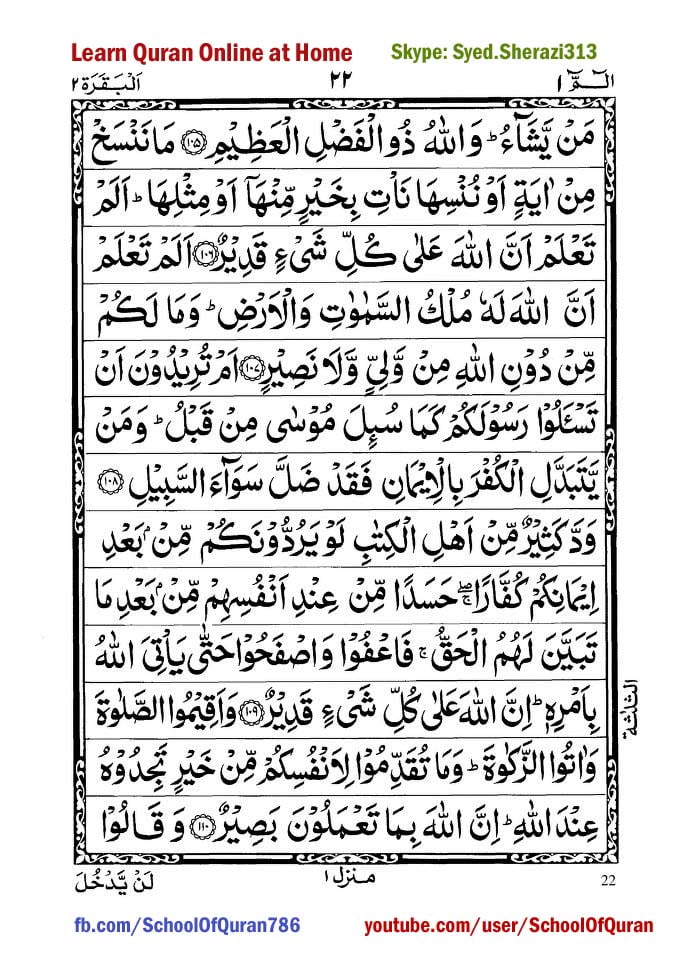 Learn Quran Online at Home Skype: Syed.Sherazi313
الٓـمّٓ ١ ٢٢ اَلْبَقَرَة ٢
مَنْ يَّشَآءُ ؕ وَاللّٰهُ ذُو الْفَضْلِ الْعَظِيْمِ ﴿۱۰۵﴾ مَا نَنْسَخْ
مِنْ اٰيَةٍ اَوْ نُنْسِهَا نَاْتِ بِخَيْرٍ مِّنْهَآ اَوْ مِثْلِهَا ؕ اَلَمْ
تَعْلَمْ اَنَّ اللّٰهَ عَلٰى كُلِّ شَىْءٍ قَدِيْرٌ ﴿۱۰۶﴾ اَلَمْ تَعْلَمْ
اَنَّ اللّٰهَ لَهٗ مُلْكُ السَّمٰوٰتِ وَالْاَرْضِ ؕ وَمَا لَكُمْ
مِّنْ دُوْنِ اللّٰهِ مِنْ وَّلِيٍّ وَّلَا نَصِيْرٍ ﴿۱۰۷﴾ اَمْ تُرِيْدُوْنَ اَنْ
تَسْـَٔلُوْا رَسُوْلَكُمْ كَمَا سُئِلَ مُوْسٰى مِنْ قَبْلُ ؕ وَمَنْ
يَّتَبَدَّلِ الْكُفْرَ بِالْاِيْمَانِ فَقَدْ ضَلَّ سَوَآءَ السَّبِيْلِ ﴿۱۰۸﴾
وَدَّ كَثِيْرٌ مِّنْ اَهْلِ الْكِتٰبِ لَوْ يَرُدُّوْنَكُمْ مِّنْۢ بَعْدِ
اِيْمَانِكُمْ كُفَّارًا ۖۚ حَسَدًا مِّنْ عِنْدِ اَنْفُسِهِمْ مِّنْۢ بَعْدِ مَا
تَبَيَّنَ لَهُمُ الْحَقُّ ۚ فَاعْفُوْا وَاصْفَحُوْا حَتّٰى يَاْتِىَ اللّٰهُ
بِاَمْرِهٖ ؕ اِنَّ اللّٰهَ عَلٰى كُلِّ شَىْءٍ قَدِيْرٌ ﴿۱۰۹﴾ وَاَقِيْمُوا الصَّلٰوةَ
وَاٰتُوا الزَّكٰوةَ ؕ وَمَا تُقَدِّمُوْا لِاَنْفُسِكُمْ مِّنْ خَيْرٍ تَجِدُوْهُ
عِنْدَ اللّٰهِ ؕ اِنَّ اللّٰهَ بِمَا تَعْمَلُوْنَ بَصِيْرٌ ﴿۱۱۰﴾ وَقَالُوْا
الثلثة
22 منزل ١ لَنْ يَّدْخُلَ
fb.com/SchoolOfQuran786 youtube.com/user/SchoolOfQuran